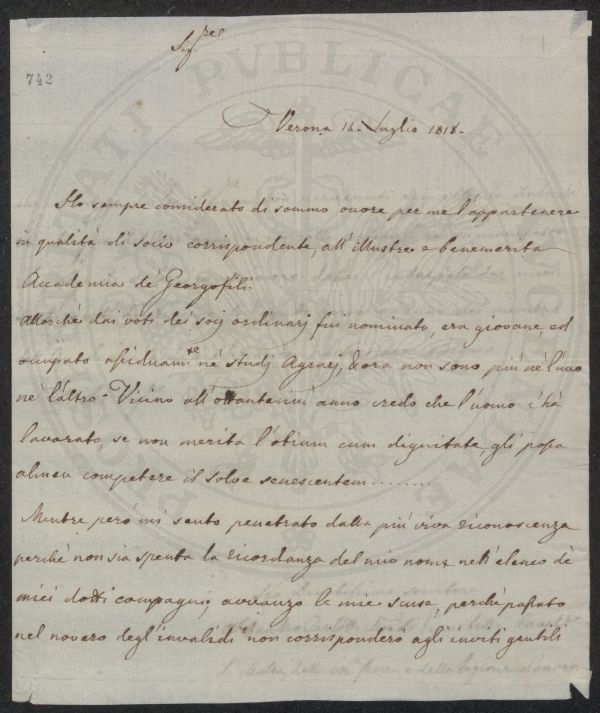 Sig.res
742
Verona 14. Luglio 1818.
Ho sempre considerato di sommo onore per me l'appartenere
in qualità di socio corrispondente, all'illustre e benemerita
Accademia de' Georgofili.
Allorchè dai voti dei socj ordinarj fui nominato, era giovane, ed
occupato assiduam.te ne' studj Agrarj, & ora non sono più nè l'uno
nè l'altro. Vicino all'ottantesimo anno credo che l'uomo c'hà
lavorato, se non merita l'otium cum dignitate, gli possa
almen competere il solve senescentem........
Mentre però mi sento penetrato dalla più viva riconoscenza
perchè non sia spenta la ricordanza del mio nome nell'elenco de'
miei dotti compagni, avvanzo le mie scuse, perchè passato
nel novero degl'invalidi non corrisponderò agli inviti gentili
PUBLICAE